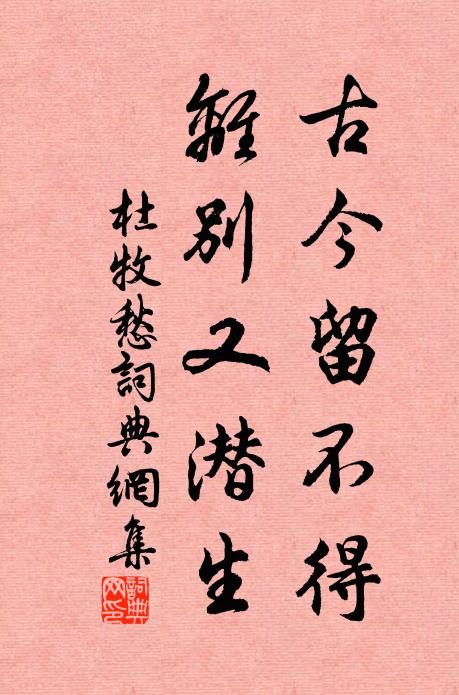 古今留不得
離別又潜生
杜牧愁詞典網集
詞典网印